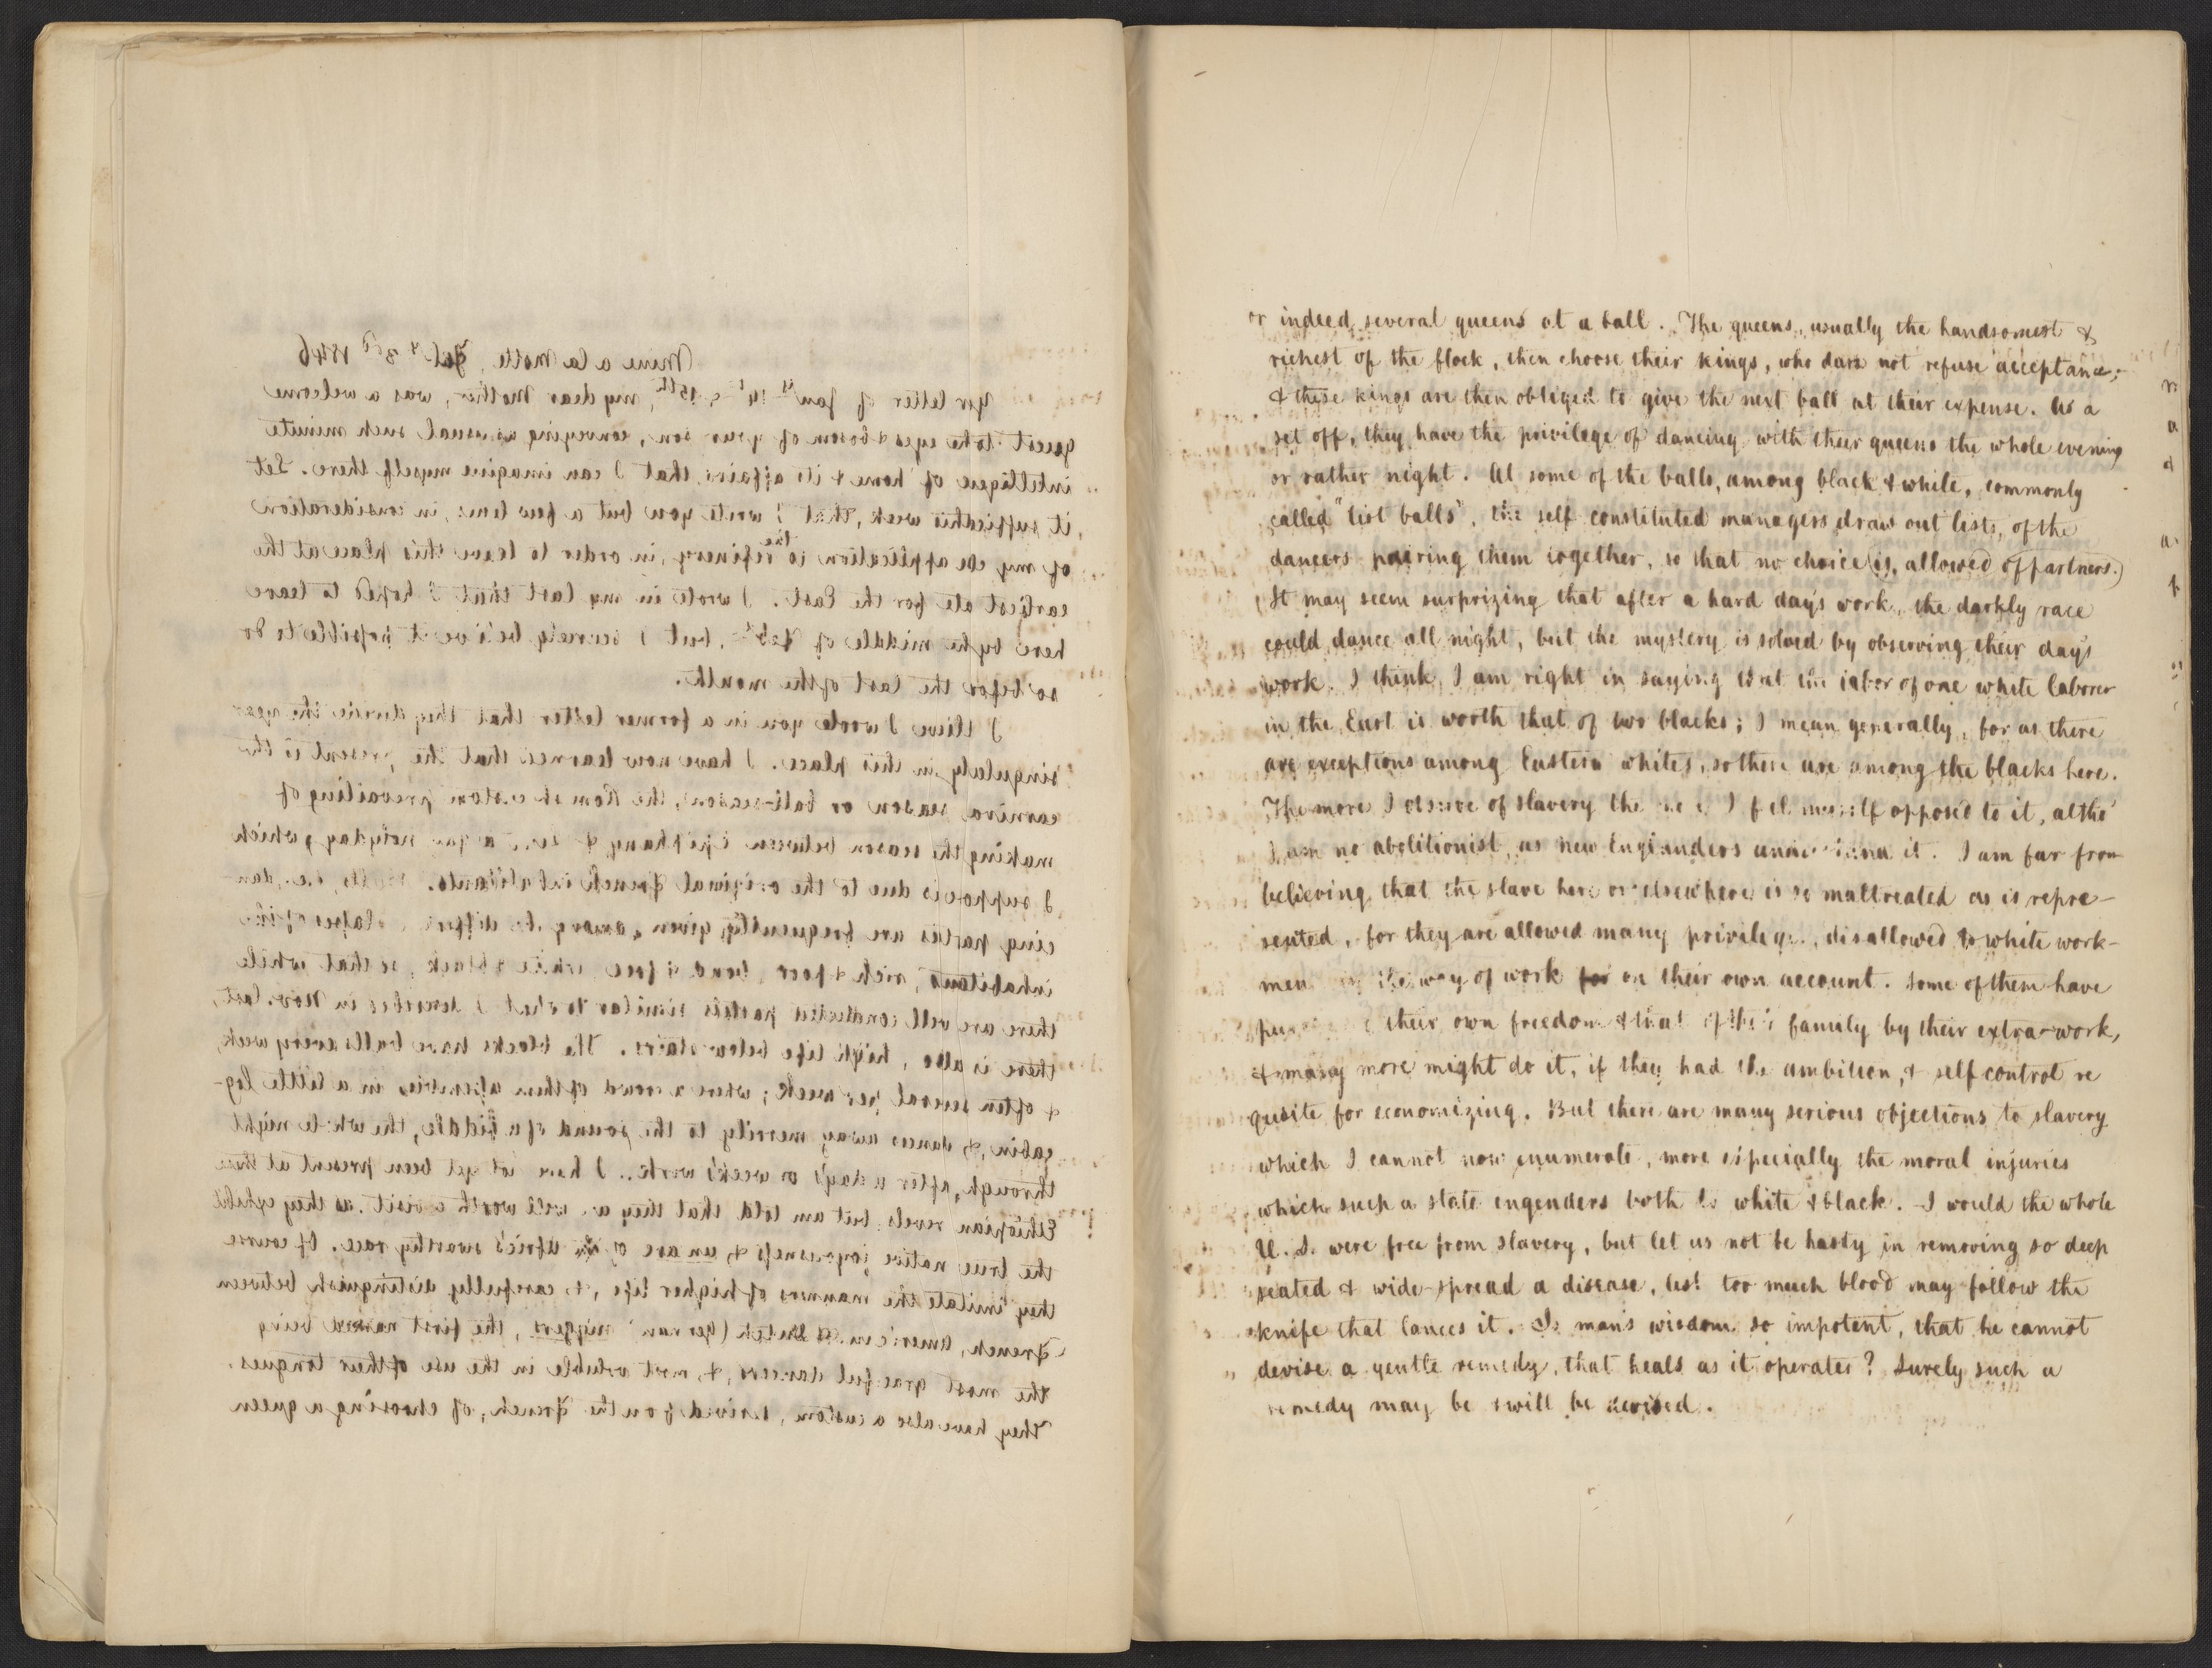 Mine a la Motte, Feb.y 3rd 1846
Yr letter of Jany 14 & 15th, my dear Mother, was a welcome
guest to the eyes & bosom of your son, conveying as usual such minute
intelligence of home & its affairs, that I can imagine myself there. Let
it suffice this week, that I write you but a few lines, in consideration
of my application to the refinery, in order to leave this place at the
earliest date for the East. I wrote in my last that I hoped to leave
here by the middle of Feby, but I scarcely believe it possible to do
so before the last of the month.
I think I wrote you in a former letter that they divide the year
singularly in this place. I have now learned that the present is the
carnival season or ball-season, the Romish custom prevailing of
making the season between Epiphany & Lent a gay holyday, which
I suppose is due to the original French inhabitants. Balls, i.e. dan-
cing parties are frequently given among the different classes of the
inhabitants, rich & poor, bond & free, white & black, so that while
there are well conducted parties similar to that I described in Nov. last,
there is also, high life below stairs. The blacks have balls every week,
& often several per week; where a crowd of them assembles in a little log-
cabin, & dances away merrily to the sound of a fiddle, the whole night
through, after a day's or week's work. I have not yet been present at these
Ethiopian revels but am told that they are well worth a visit, as they exhibit
the true native joyousness & of Africs swarthy race. Of course
they imitate the manners of higher life, & carefully distinguish between
French, American & Dutch (German) niggers, the first named being
the most graceful dancers, & most voluble in the use of their tongues.
They have also a custom, derived from the French, of choosing a queen
or indeed several queens at a ball. The queens, usually the handsomest &
richest of the flock, then choose their kings, who dare not refuse acceptance;
& these kings are then obliged to give the next ball at their expense. As a
set off, they have the privilege of dancing with their queens the whole evening
or rather night. At some of the balls, among black & white, commonly
called "list balls", the self constituted managers draw out lists, of the
dancers pairing them together, so that no choice (is, allowed of partners.)
It may seem surprizing that after a hard day's work, the darkly race
could dance all night, but the mystery is solved by observing their day's
work. I think, I am right in saying that the labor of one white laborer
in the East is worth that of two blacks; I mean generally, for as there
are exceptions among Eastern whites, so there are among the blacks here.
The more I observe of slavery the more I feel myself opposed to it, altho'
I am no abolitionist, as new Englanders understand it. I am far from
believing, that the slave here or elsewhere is so maltreated as is repre-
sented, for they are allowed many privileges, disallowed to white work-
men in the way of work for on their own account. Some of them have
their own freedom & that of their family by their extra-work,
& many more might do it, if they had the ambition, & self control re
quisite for economizing. But there are many serious objections to slavery
which I cannot now enumerate, more especially the moral injuries
which such a state engenders both to white & black. I would the whole
U. S. were free from slavery, but let us not be hasty in removing so deep
seated & wide-spread a disease, lest too much blood may follow the
knife that lances it. Is man's wisdom so impotent, that he cannot
devise a gentle remedy, that heals as it operates? Surely such a
remedy may be & will be devised.